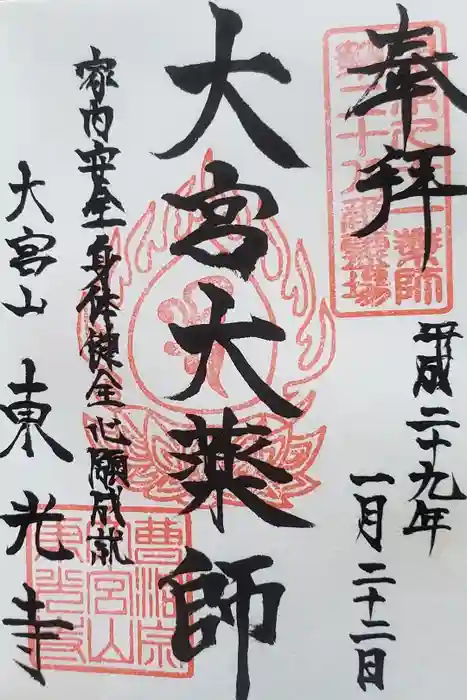 奉拝
平成二十九年
一月二十二日
大宮大薬師
家内安全身体健全心願成就
大宮山東光寺
曹洞宗
大宮山
東光寺